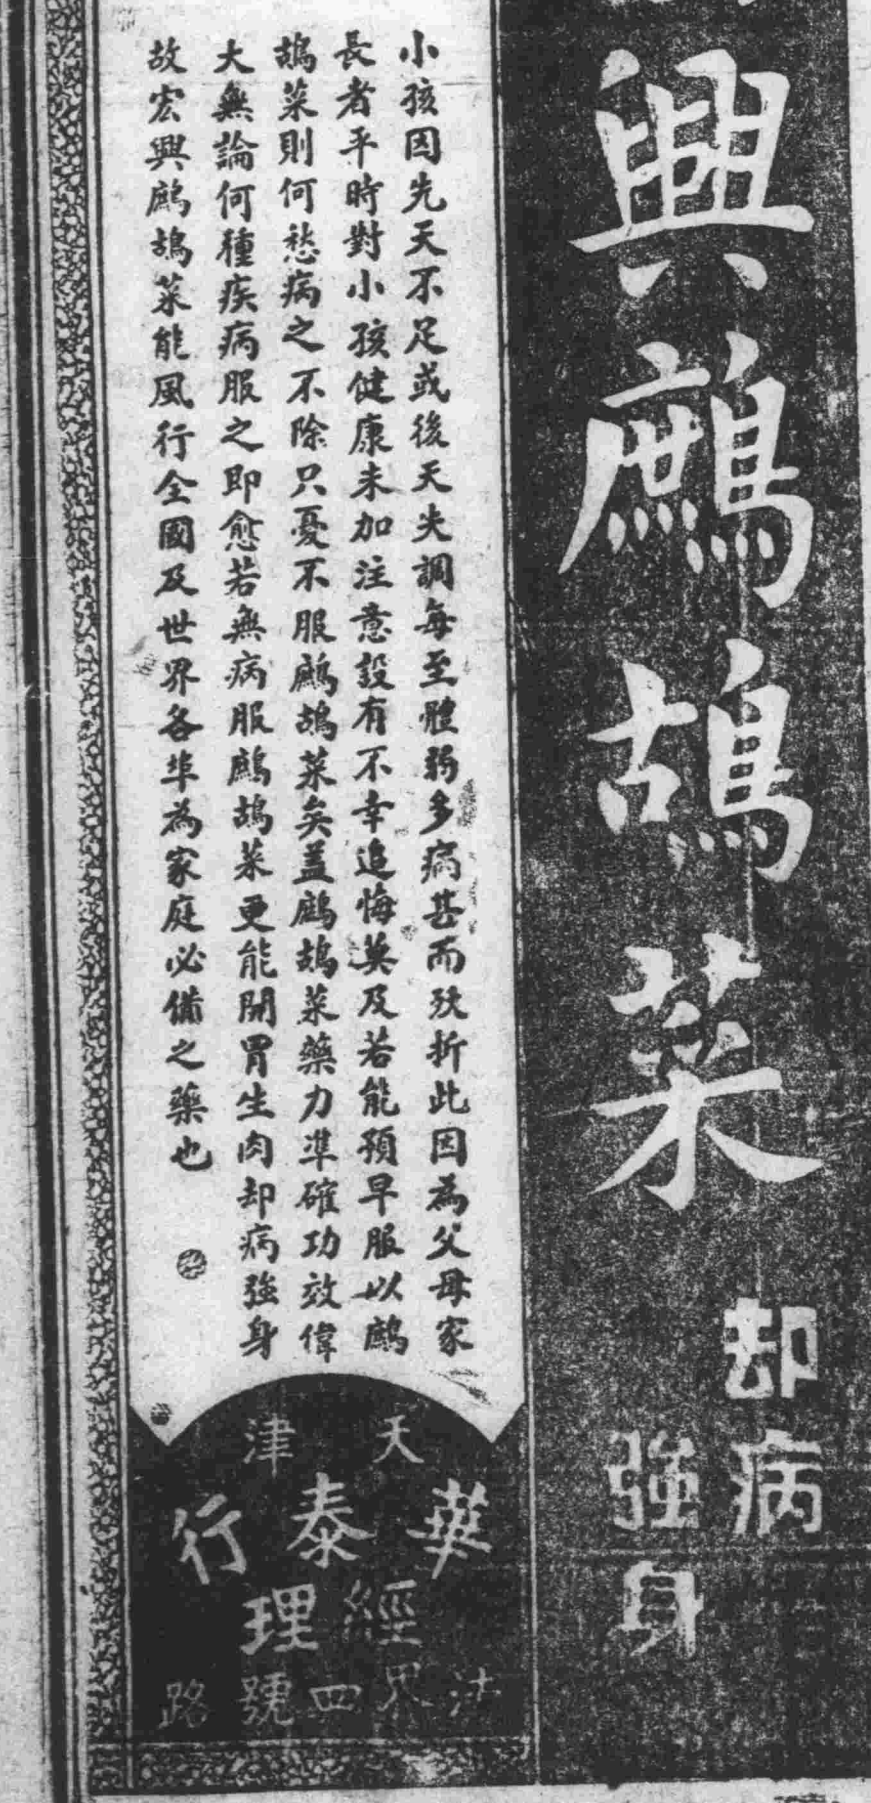 興鷓鴣菜
却病
強身
小孩因先天不足或後天失調每至體弱多病甚而殀折此因為父母家
長者平時對小孩健康未加注意設有不幸追悔莫及若能預早服以鷓
鴣菜則何愁病之不除只憂不服鷓鴣菜矣蓋鷓鴣菜藥力準確功效偉
大無論何種疾病服之即愈若無病服鷓鴣菜更能開胃生肉却病強身
故宏興鷓鴣菜能風行全國及世界各埠為家庭必備之藥也
天津
華泰行
經理
法界四號路